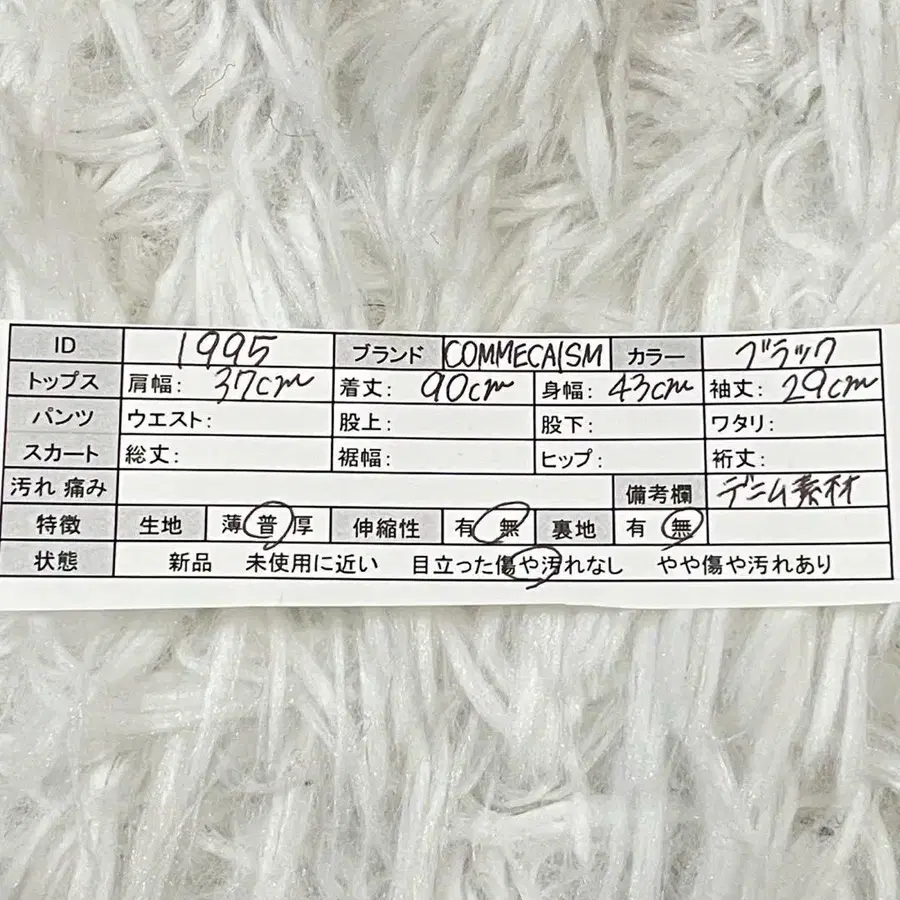 ID 1995 ブランド COMMECAISM カラー ブラック
トップス 肩幅: 37cm 着丈: 90cm 身幅: 43cm 袖丈: 29cm
パンツ ウエスト: 股上: 股下: ワタリ:
スカート 総丈: 裾幅: ヒップ: 裄丈:
汚れ 痛み 備考欄 デニム素材
特徴 生地 薄 普 厚 伸縮性 有 無 裏地 有 無
状態 新品 未使用に近い 目立った傷や汚れなし やや傷や汚れあり